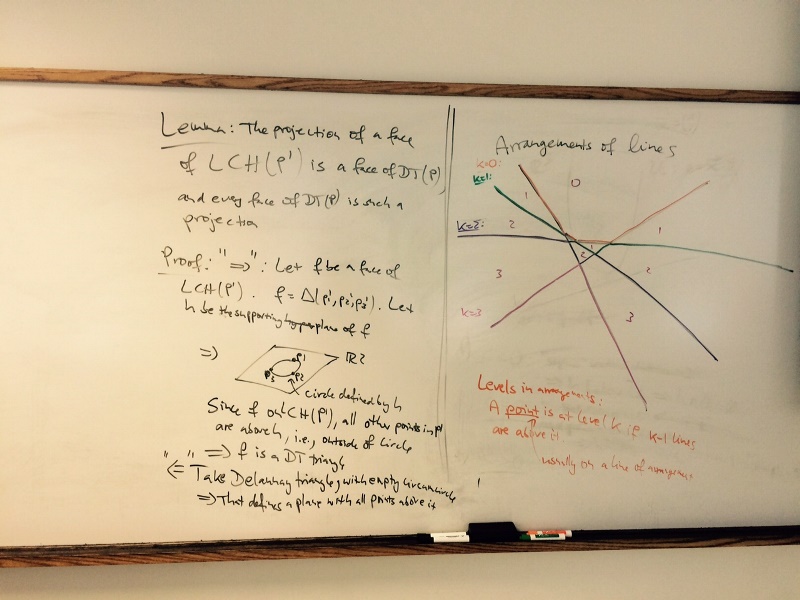 Lemma: The projection of a face
of LCH(P') is a face of DT(P),
and every face of DT(P) is such a
projection
Proof: "⇒": Let f be a face of
LCH(P'). f = Δ(p1', p2', p3'). Let
h be the supporting hyperplane of f
⇒
p1
p3 p2
ℝ2
circle defined by h
Since f on LCH(P'), all other points in P'
are above h, i.e., outside of circle
⇒ f is a DT triangle
"⇐" Take Delaunay triangle, with empty circumcircle
⇒ That defines a plane with all points above it
Arrangements of lines
k=0:
k=1:
k=2:
k=3
0
1
1
2
1
2
2
3
3
Levels in arrangements:
A point is at level k if k-1 lines
are above it
usually on a line of arrangement